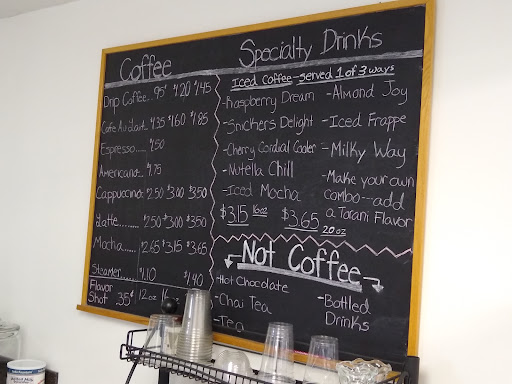 Coffee
Drip Coffee.. 95¢ $1.20 $1.45
Cafe Au Lait.. $1.35 $1.60 $1.85
Espresso..... $1.50
Americano.. $1.75
Cappuccino: $2.50 $3.00 $3.50
Latte........ $2.50 $3.00 $3.50
Mocha....... $2.65 $3.15 $3.65
Steamer..... $1.10 $1.40
Flavor
Shot 35¢ 12oz 16
Specialty Drinks
Iced Coffee-served 1 of 3 ways
-Raspberry Dream
-Snickers Delight
-Cherry Cordial Cooler
-Nutella Chill
-Iced Mocha
-Almond Joy
-Iced Frappe
-Milky Way
-Make your own
combo--add
a Torani Flavor
$3.15 16oz $3.65 20oz
Not Coffee
-Hot Chocolate
-Chai Tea
-Tea
-Bottled
Drinks